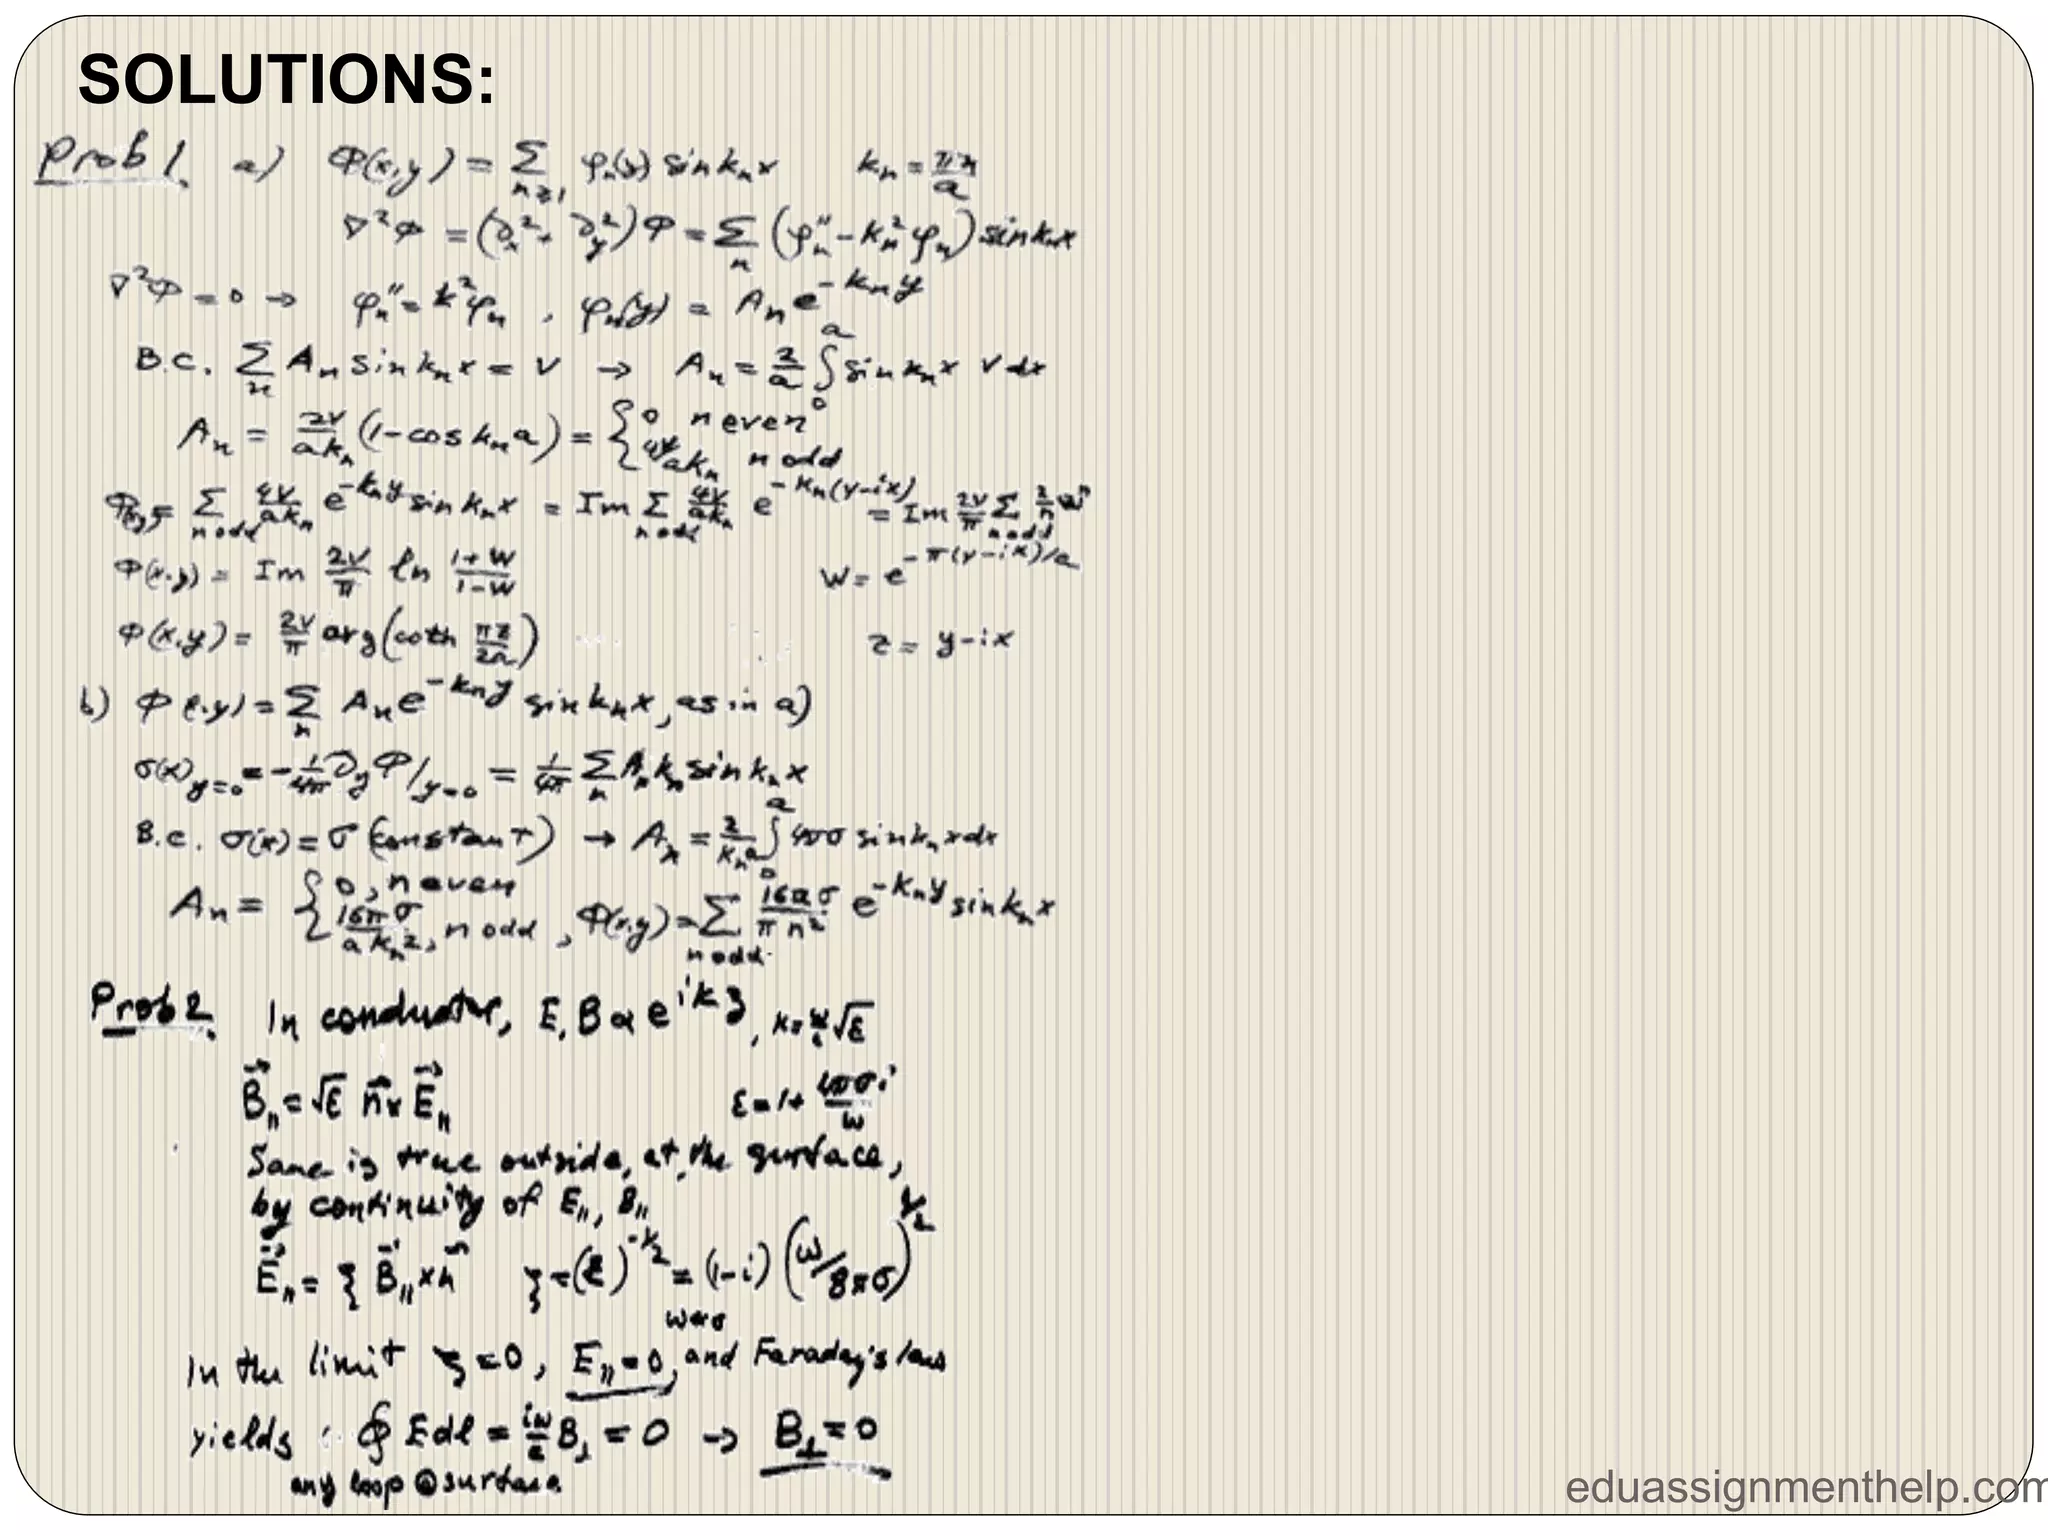 SOLUTIONS:
Prob 1. a) Φ(x,y) = Σ_{n≥1} φ_n(y) sin k_n x    k_n = πn/a
∇²Φ = (∂_x² + ∂_y²)Φ = Σ_n (φ_n'' − k_n² φ_n) sin k_n x
∇²Φ = 0 → φ_n'' = k² φ_n , φ_n(y) = A_n e^{−k_n y}
B.C. Σ_n A_n sin k_n x = V → A_n = 2/a ∫_0^a sin k_n x V dx
A_n = 2V/(a k_n) (1 − cos k_n a) = { 0 n even ; 4V/ak_n n odd
Φ(x,y) = Σ_{n odd} 4V/(a k_n) e^{−k_n y} sin k_n x = Im Σ_{n odd} 4V/(a k_n) e^{−k_n(y−ix)} = Im 2V/π Σ_{n odd} 2/n w^n
Φ(x,y) = Im 2V/π ln (1+w)/(1−w)    w = e^{−π(y−ix)/a}
Φ(x,y) = 2V/π arg(coth πz/2a)    z = y−ix
b) Φ(x,y) = Σ_n A_n e^{−k_n y} sin k_n x, as in a)
σ(x)_{y=0} = −1/4π ∂_y Φ|_{y=0} = 1/4π Σ_n A_n k_n sin k_n x
B.c. σ(x) = σ (constant) → A_n = 2/(k_n a) ∫_0^a 4πσ sin k_n x dx
A_n = { 0, n even ; 16πσ/(a k_n²), n odd , Φ(x,y) = Σ_{n odd} 16aσ/(π n²) e^{−k_n y} sin k_n x
Prob 2. In conductor, E, B ∝ e^{ikz}, k = ω/c √ε
B⃗_∥ = √ε n⃗ × E⃗_∥    ε = 1 + 4πσi/ω
Same is true outside, at the surface,
by continuity of E_∥, B_∥
E⃗_∥ = ζ B⃗_∥ × n⃗    ζ = (ε)^{−1/2} = (1−i) (ω/8πσ)^{1/2}
ω≪σ
In the limit ζ = 0, E_∥ = 0, and Faraday's law
yields : ∮ E dl = iω/c B_⊥ = 0 → B_⊥ = 0
any loop @ surface
eduassignmenthelp.com